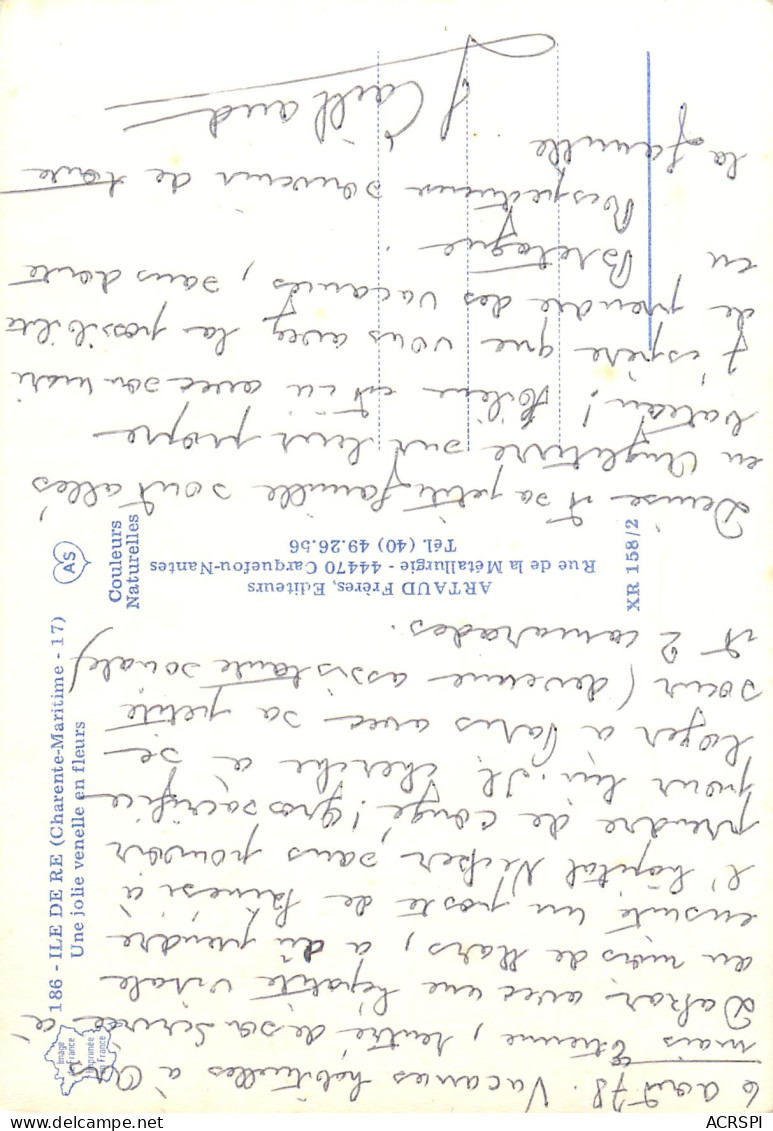 6 août 78. Vacances habituelles à Ars
mais Etienne, rentré de son service à
Dakar avec une hépatite virale
au mois de Mars, a dû prendre
ensuite un poste de à
l'hôpital Necker, sans pouvoir
prendre de congé! Gros sacrifice
pour lui. Il cherche à se
loger à Paris avec sa petite
soeur (devenue assistante sociale)
et 2 camarades.
Denise et sa petite famille sont allés
en Angleterre sur leur propre
bateau! est ici avec son mari
J'espère que vous avez la possibilité
de prendre des vacances, sans doute
en Bretagne.
Respectueux souvenir de toute
la famille
J Caillaud
186 - ILE DE RE (Charente-Maritime - 17)
Une jolie venelle en fleurs
Image de France
Imprimée en France
AS
Couleurs
Naturelles
ARTAUD Frères, Editeurs
Rue de la Métallurgie - 44470 Carquefou-Nantes
Tél. (40) 49.26.56
XR 158/2
ACRSPI